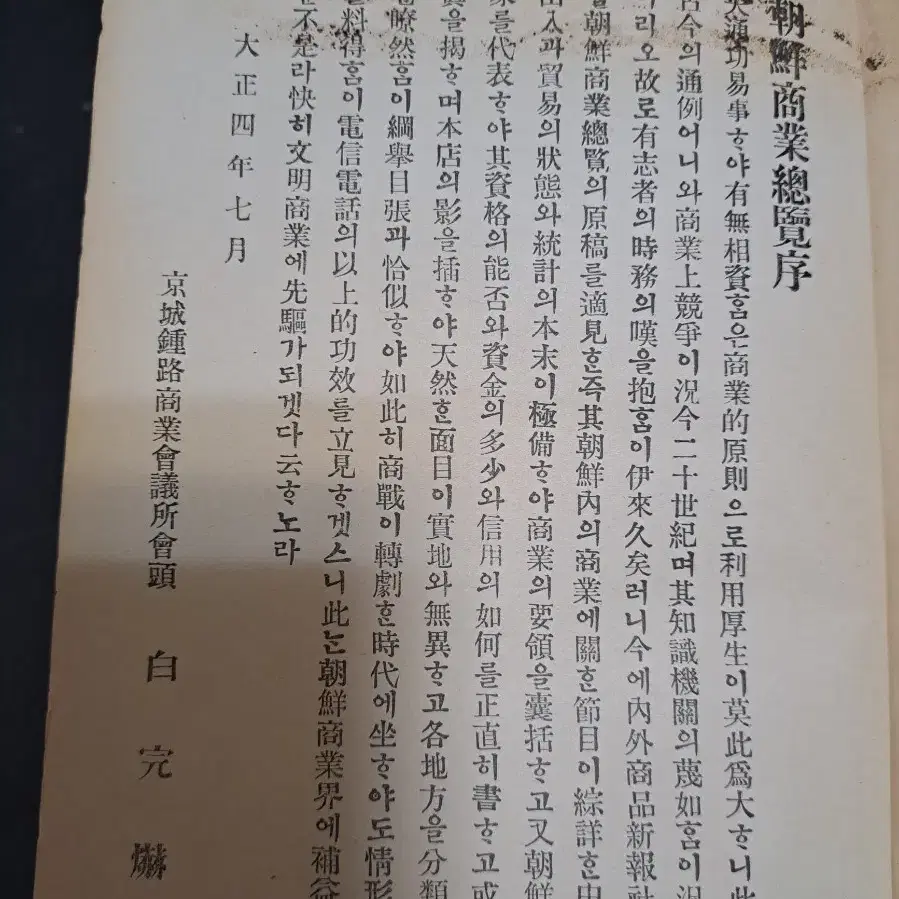 朝鮮商業總覽序
通功易事ᄒᆞ야有無相資ᄒᆞᆷ은商業的原則으로利用厚生이莫此爲大ᄒᆞ니此
古今의通例어니와商業上競爭이況今二十世紀며其知識機關의蔑如ᄒᆞᆷ이況
리오故로有志者의時務의嘆을抱ᄒᆞᆷ이伊來久矣러니今에內外商品新報社
朝鮮商業總覽의原稿를適見ᄒᆞᆫ즉其朝鮮內의商業에關ᄒᆞᆫ節目이綜詳ᄒᆞᆫ中
出入과貿易의狀態와統計의本末이極備ᄒᆞ야商業의要領을囊括ᄒᆞ고又朝鮮
家를代表ᄒᆞ야其資格의能否와資金의多少와信用의如何를正直히書ᄒᆞ고或
眞을揭ᄒᆞ며本店의影을揷ᄒᆞ야天然ᄒᆞᆫ面目이實地와無異ᄒᆞ고各地方을分類
瞭然ᄒᆞᆷ이綱擧目張과恰似ᄒᆞ야如此히商戰이轉劇ᄒᆞᆫ時代에坐ᄒᆞ야도情形
料得ᄒᆞᆷ이電信電話의以上的功效를立見ᄒᆞ겟스니此ᄂᆞᆫ朝鮮商業界에補益
不是라快히文明商業에先驅가되겟다云ᄒᆞ노라
大正四年七月
京城鍾路商業會議所會頭 白完爀